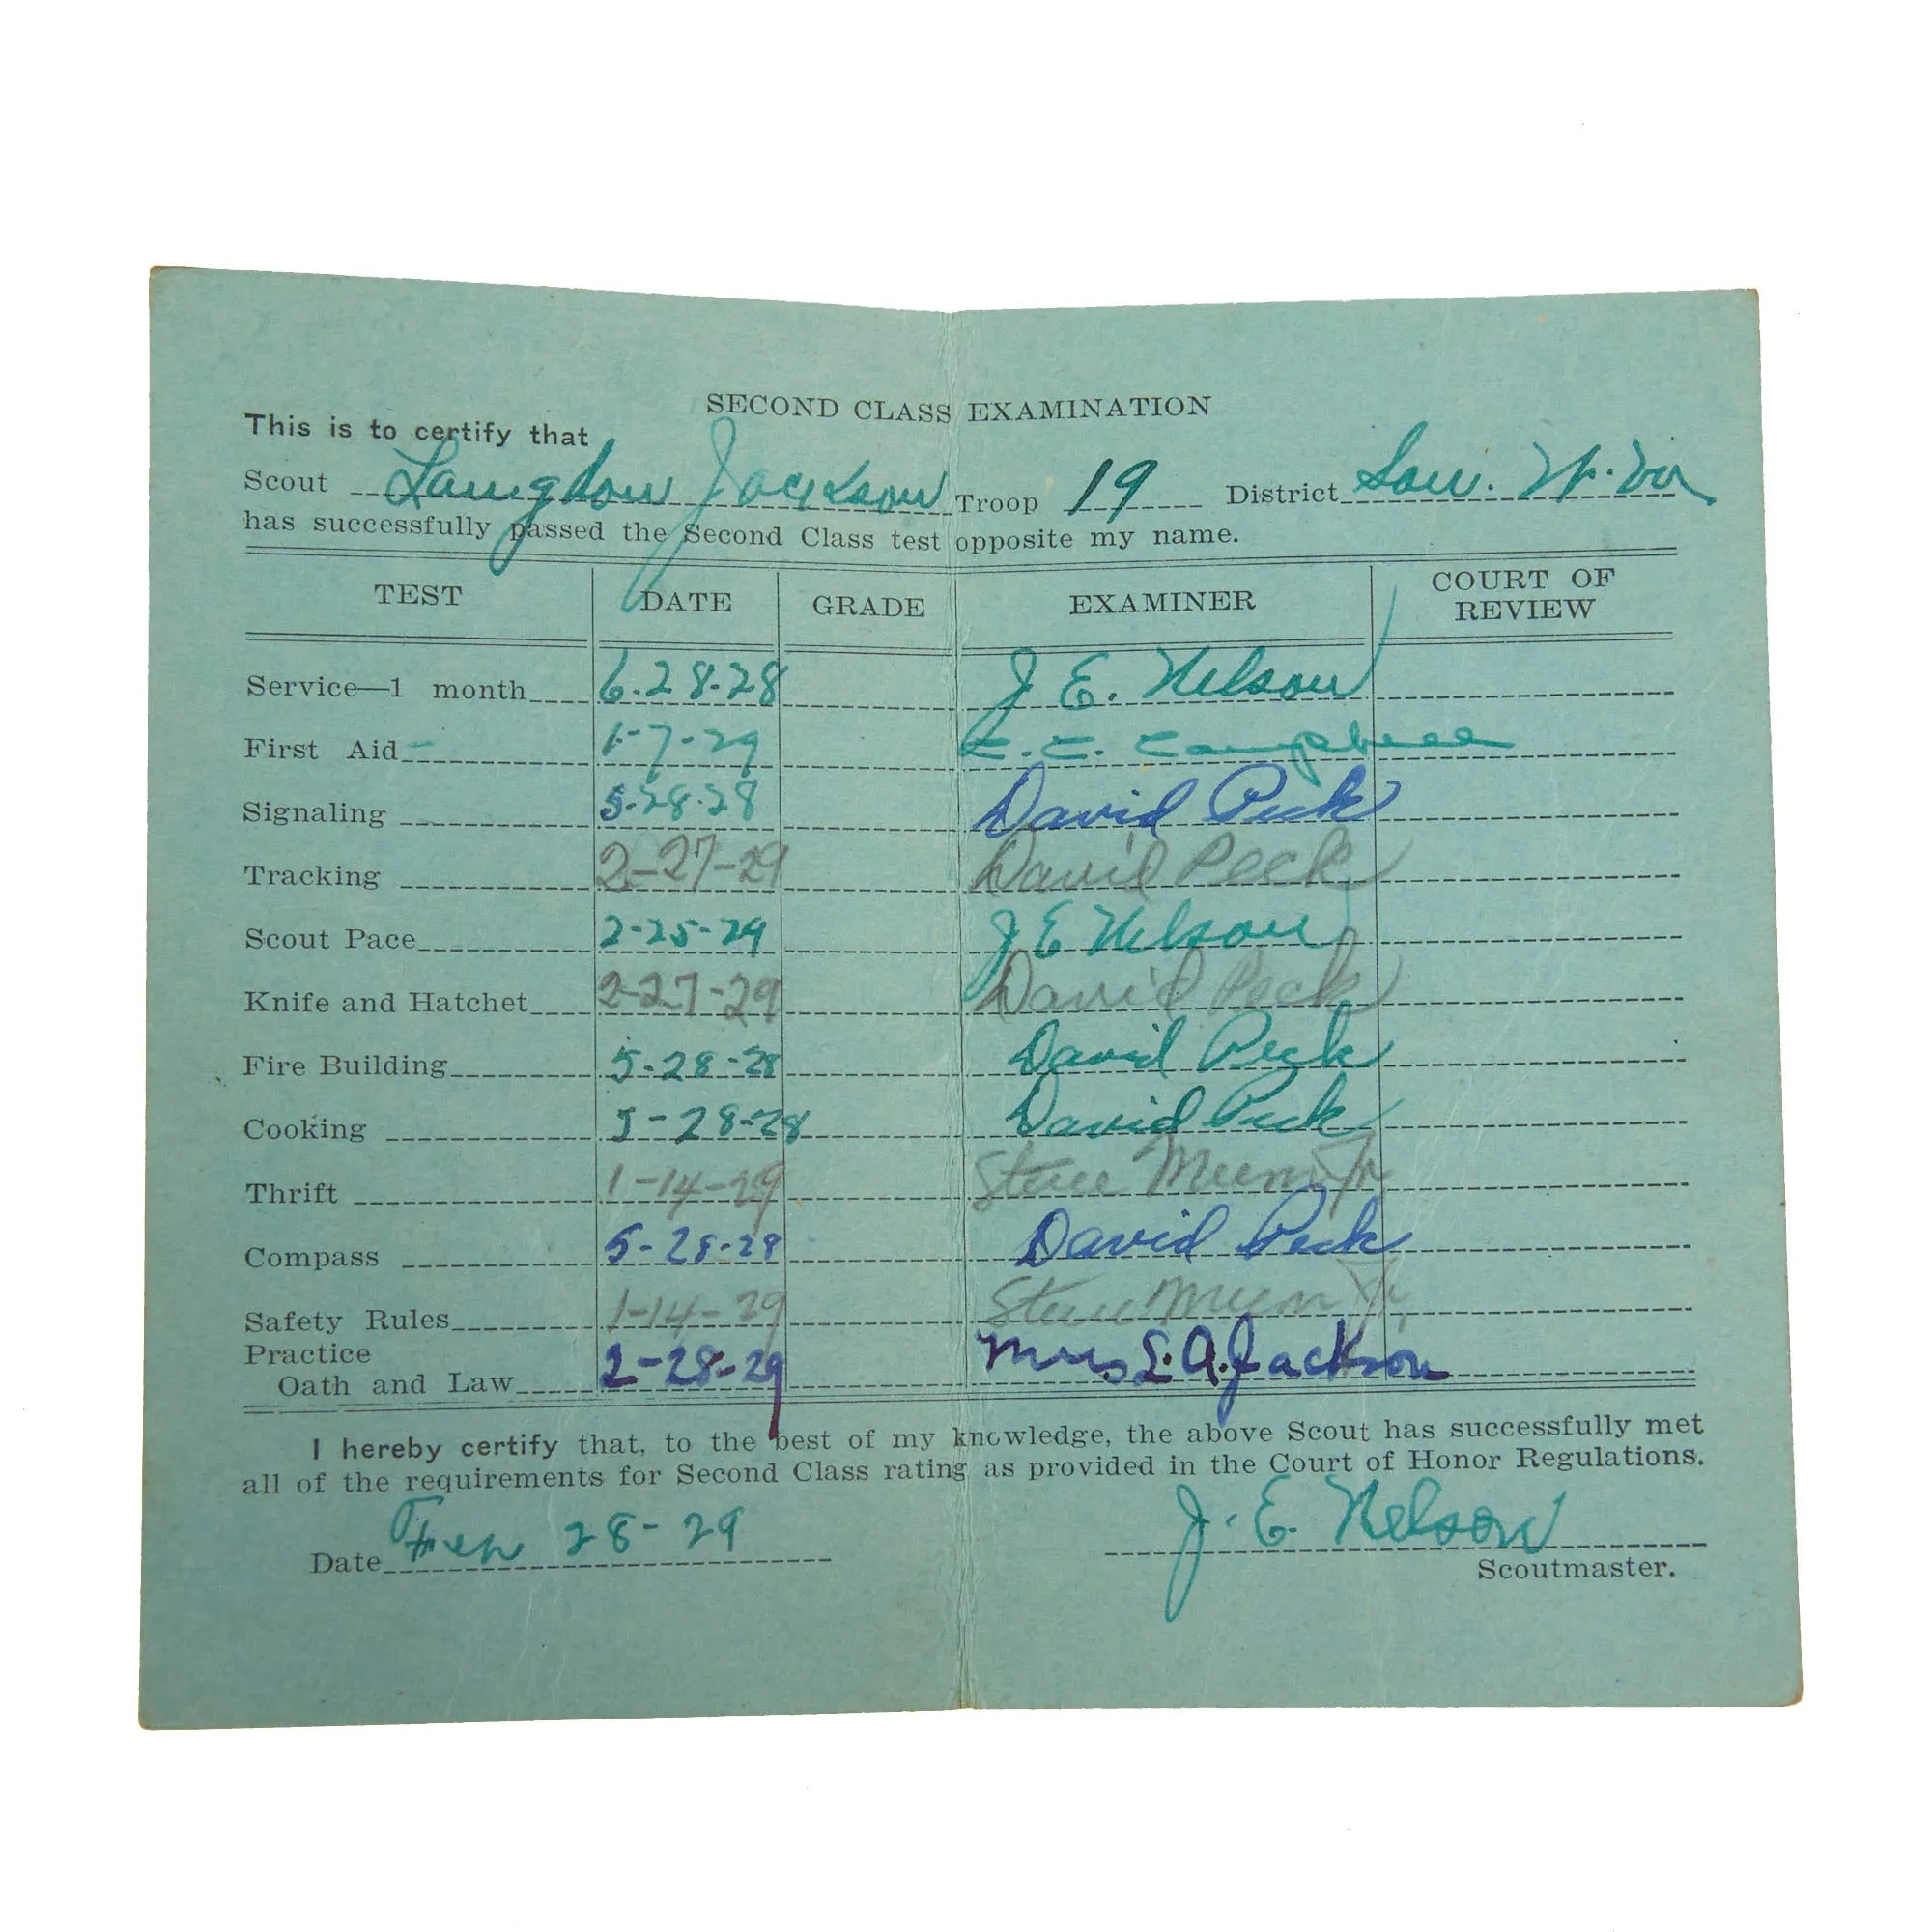 SECOND CLASS EXAMINATION
This is to certify that
Scout Langdon Jackson Troop 19 District Sou. W. Va
has successfully passed the Second Class test opposite my name.
TEST DATE GRADE EXAMINER COURT OF REVIEW
Service—1 month 6-28-28 J E. Nelson
First Aid 1-7-29 E. E. Campbell
Signaling 5-28-28 David Peck
Tracking 2-27-29 David Peck
Scout Pace 2-25-29 J E Nelson
Knife and Hatchet 2-27-29 David Peck
Fire Building 5-28-28 David Peck
Cooking 5-28-28 David Peck
Thrift 1-14-29 Jr
Compass 5-28-28 David Peck
Safety Rules 1-14-29 Jr
Practice
Oath and Law 2-28-29 Mrs L. A. Jackson
I hereby certify that, to the best of my knowledge, the above Scout has successfully met
all of the requirements for Second Class rating as provided in the Court of Honor Regulations.
Date 28-29 J. E. Nelson
Scoutmaster.